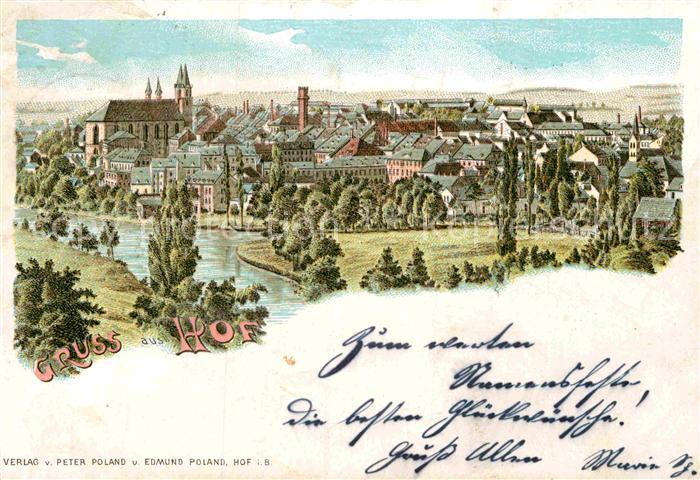 GRUSS aus HOF
Zum werten
Namensfeste,
die besten Glückwünsche!
Gruß Allen
Marie
VERLAG v. PETER POLAND u. EDMUND POLAND, HOF i. B.